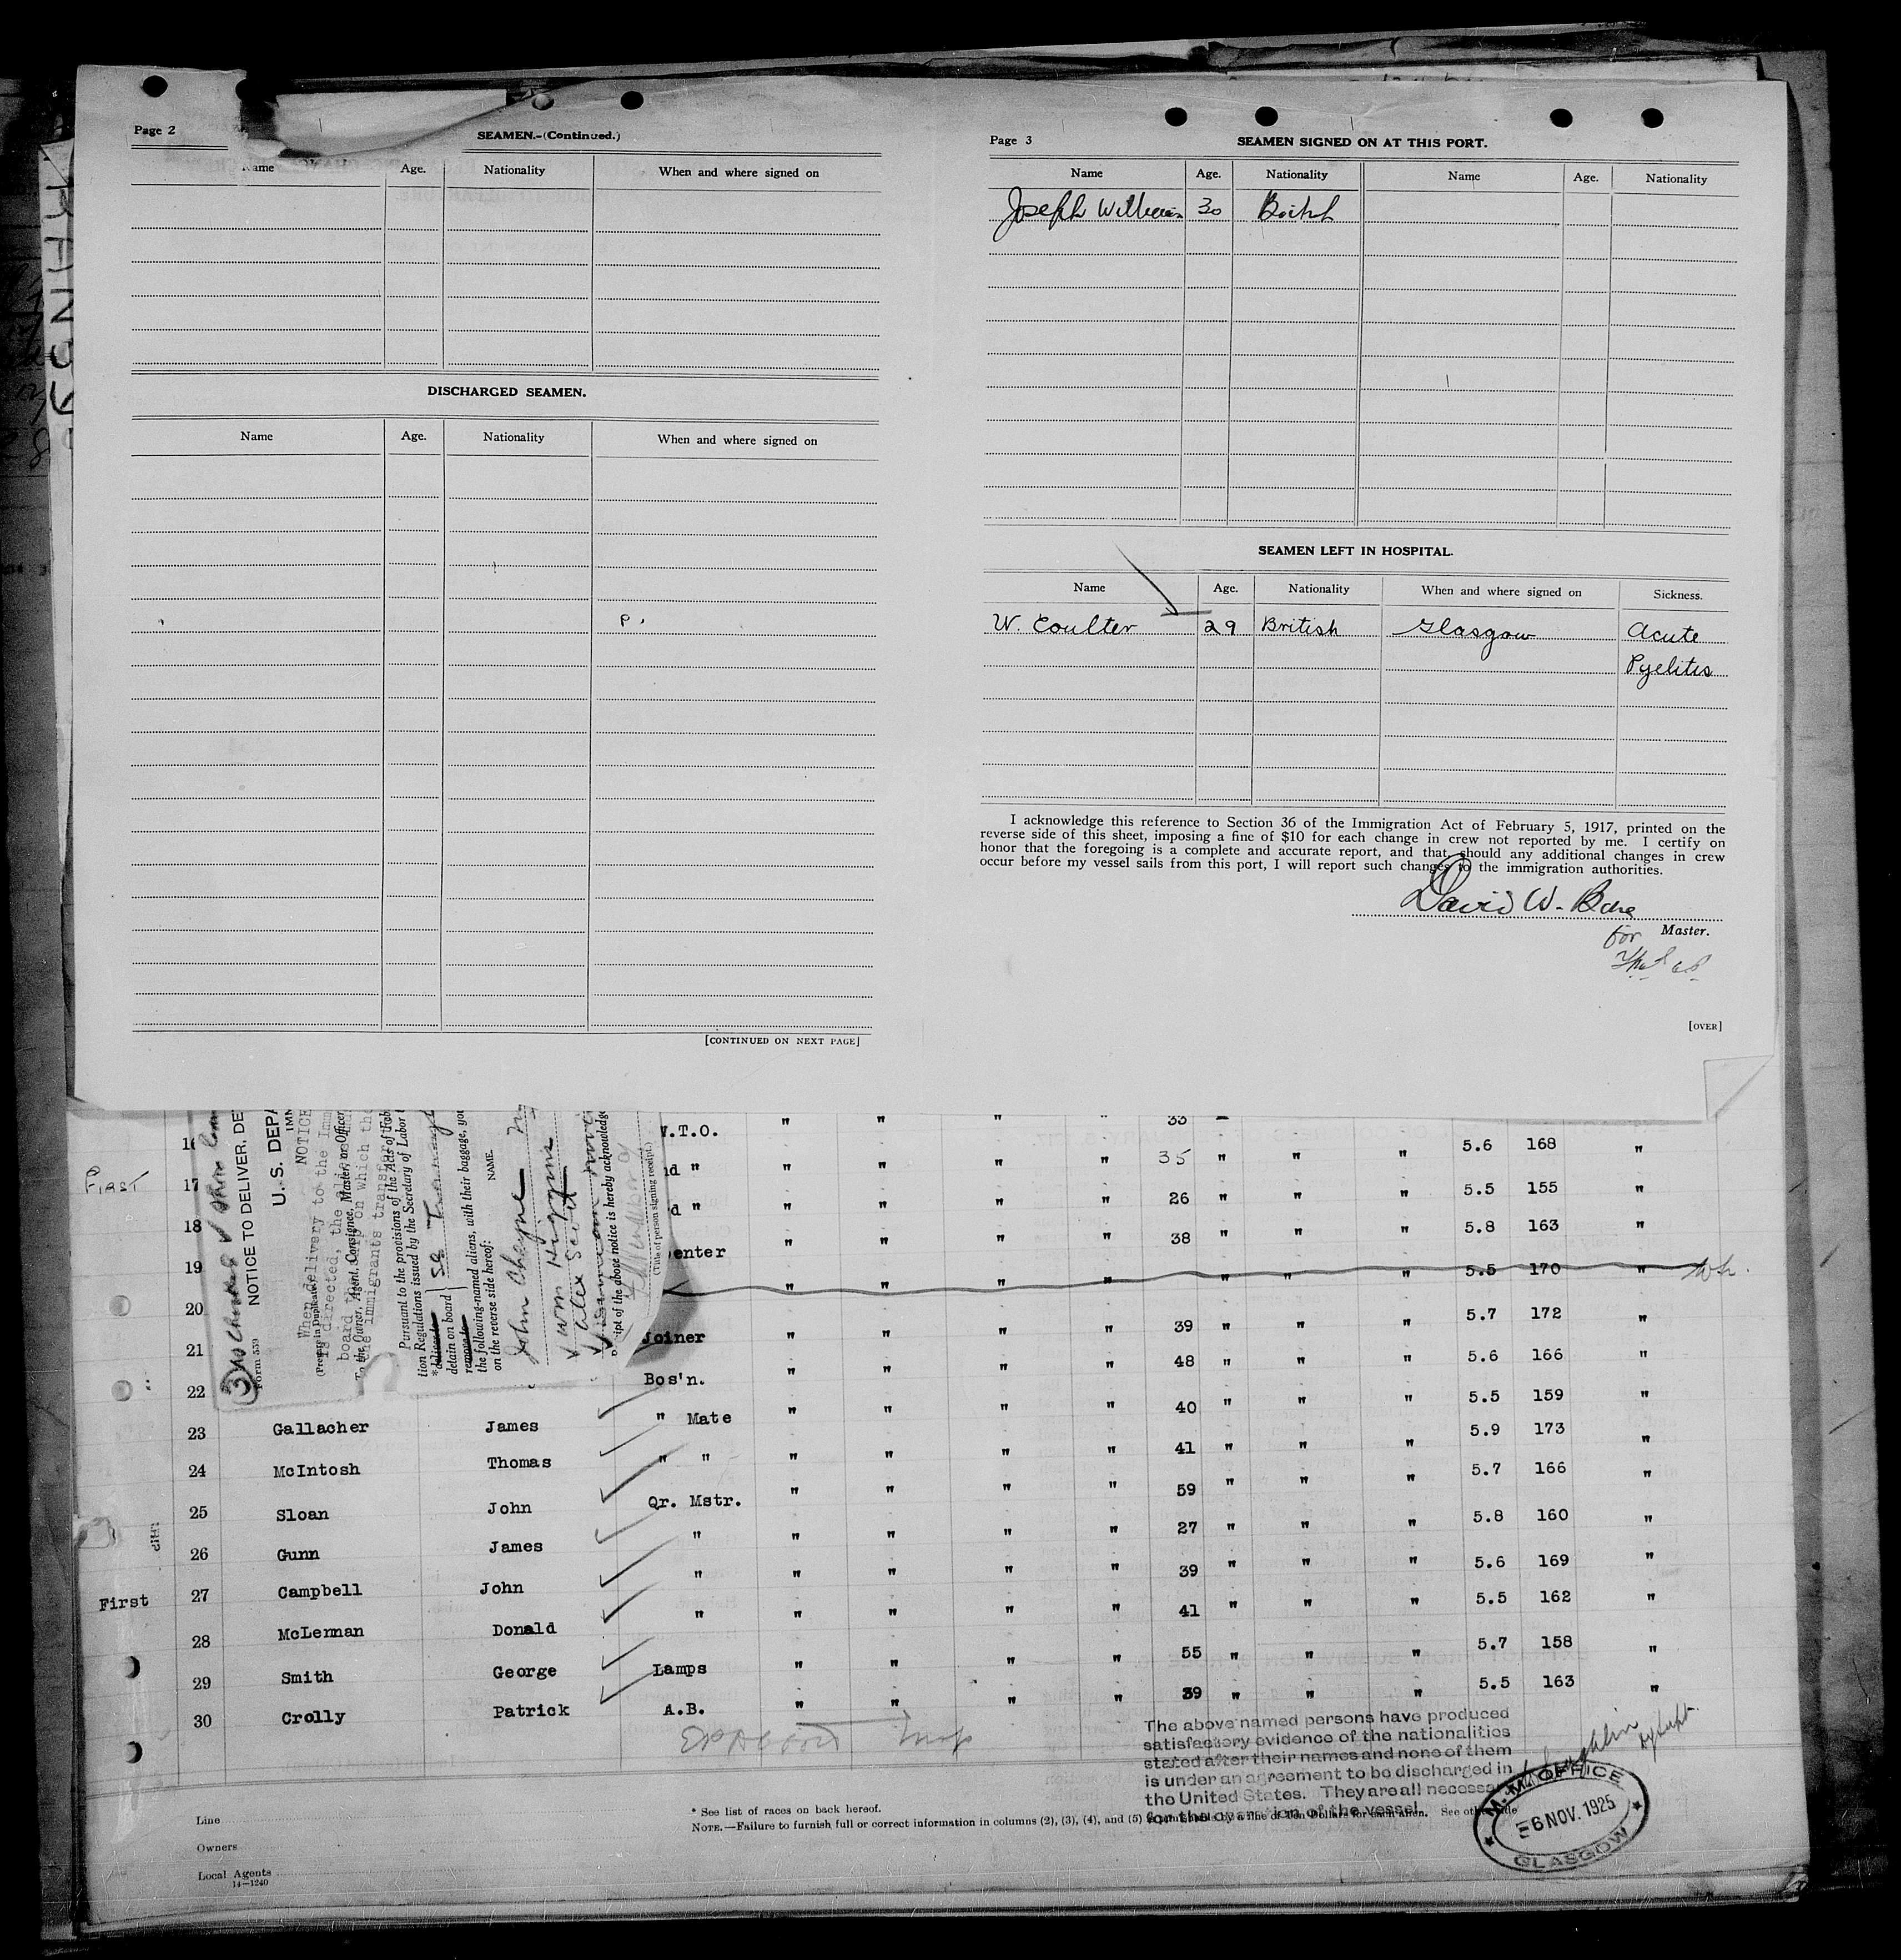 Page 2
SEAMEN.-(Continued.)
Age. Nationality When and where signed on
DISCHARGED SEAMEN.
Name Age. Nationality When and where signed on
[CONTINUED ON NEXT PAGE]
Page 3
SEAMEN SIGNED ON AT THIS PORT.
Name Age. Nationality Name Age. Nationality
Joseph Williams 30 British
SEAMEN LEFT IN HOSPITAL.
Name Age. Nationality When and where signed on Sickness.
W. Coulter 29 British Glasgow Acute
Pyelitis
I acknowledge this reference to Section 36 of the Immigration Act of February 5, 1917, printed on the
reverse side of this sheet, imposing a fine of $10 for each change in crew not reported by me. I certify on
honor that the foregoing is a complete and accurate report, and that should any additional changes in crew
occur before my vessel sails from this port, I will report such changes to the immigration authorities.
David W.
Master.
for
[OVER]
NOTICE TO DELIVER, DE
Form 539
U. S. DEPA
IMM
NOTICE
When delivery to the Imm
is directed, the
board the ship on which the
immigrants
To the Owner, Agent, Consignee, Master, or Officer
Pursuant to the provisions of the Acts of Feb
tion Regulations issued by the Secretary of Labor
detain on board
the following-named aliens, with their baggage, you
on the reverse side hereof:
NAME.
John Cheyne
Wm Higgins
Alex Scott
ipt of the above notice is hereby acknowledge
(Title of person signing receipt.)
.T.O. " " " " 33
16 " " " " " 35 " " " 5.6 168 "
First 17 " " " " " 26 " " " 5.5 155 "
18 enter " " " " 38 " " " 5.8 163 "
19 " " " " " " " 5.5 170 "
20 Joiner " " " " 39 " " " 5.7 172 "
21 Bos'n. " " " " 48 " " " 5.6 166 "
22 " Mate " " " " 40 " " " 5.5 159 "
23 Gallacher James " " " " " " 41 " " " 5.9 173 "
24 McIntosh Thomas Qr. Mstr. " " " " 59 " " " 5.7 166 "
25 Sloan John " " " " " 27 " " " 5.8 160 "
26 Gunn James " " " " " 39 " " " 5.6 169 "
First 27 Campbell John " " " " " 41 " " " 5.5 162 "
28 McLennan Donald Lamps " " " " 55 " " " 5.7 158 "
29 Smith George A.B. " " " " 39 " " " 5.5 163 "
30 Crolly Patrick
The above named persons have produced
satisfactory evidence of the nationalities
stated after their names and none of them
is under an agreement to be discharged in
the United States. They are all necessary
for the operation of the vessel.
M.M. OFFICE
6 NOV. 1925
GLASGOW
Line
Owners
Local Agents
14—1240
* See list of races on back hereof.
NOTE.—Failure to furnish full or correct information in columns (2), (3), (4), and (5) is punishable by a fine of Ten Dollars for each alien. See other side